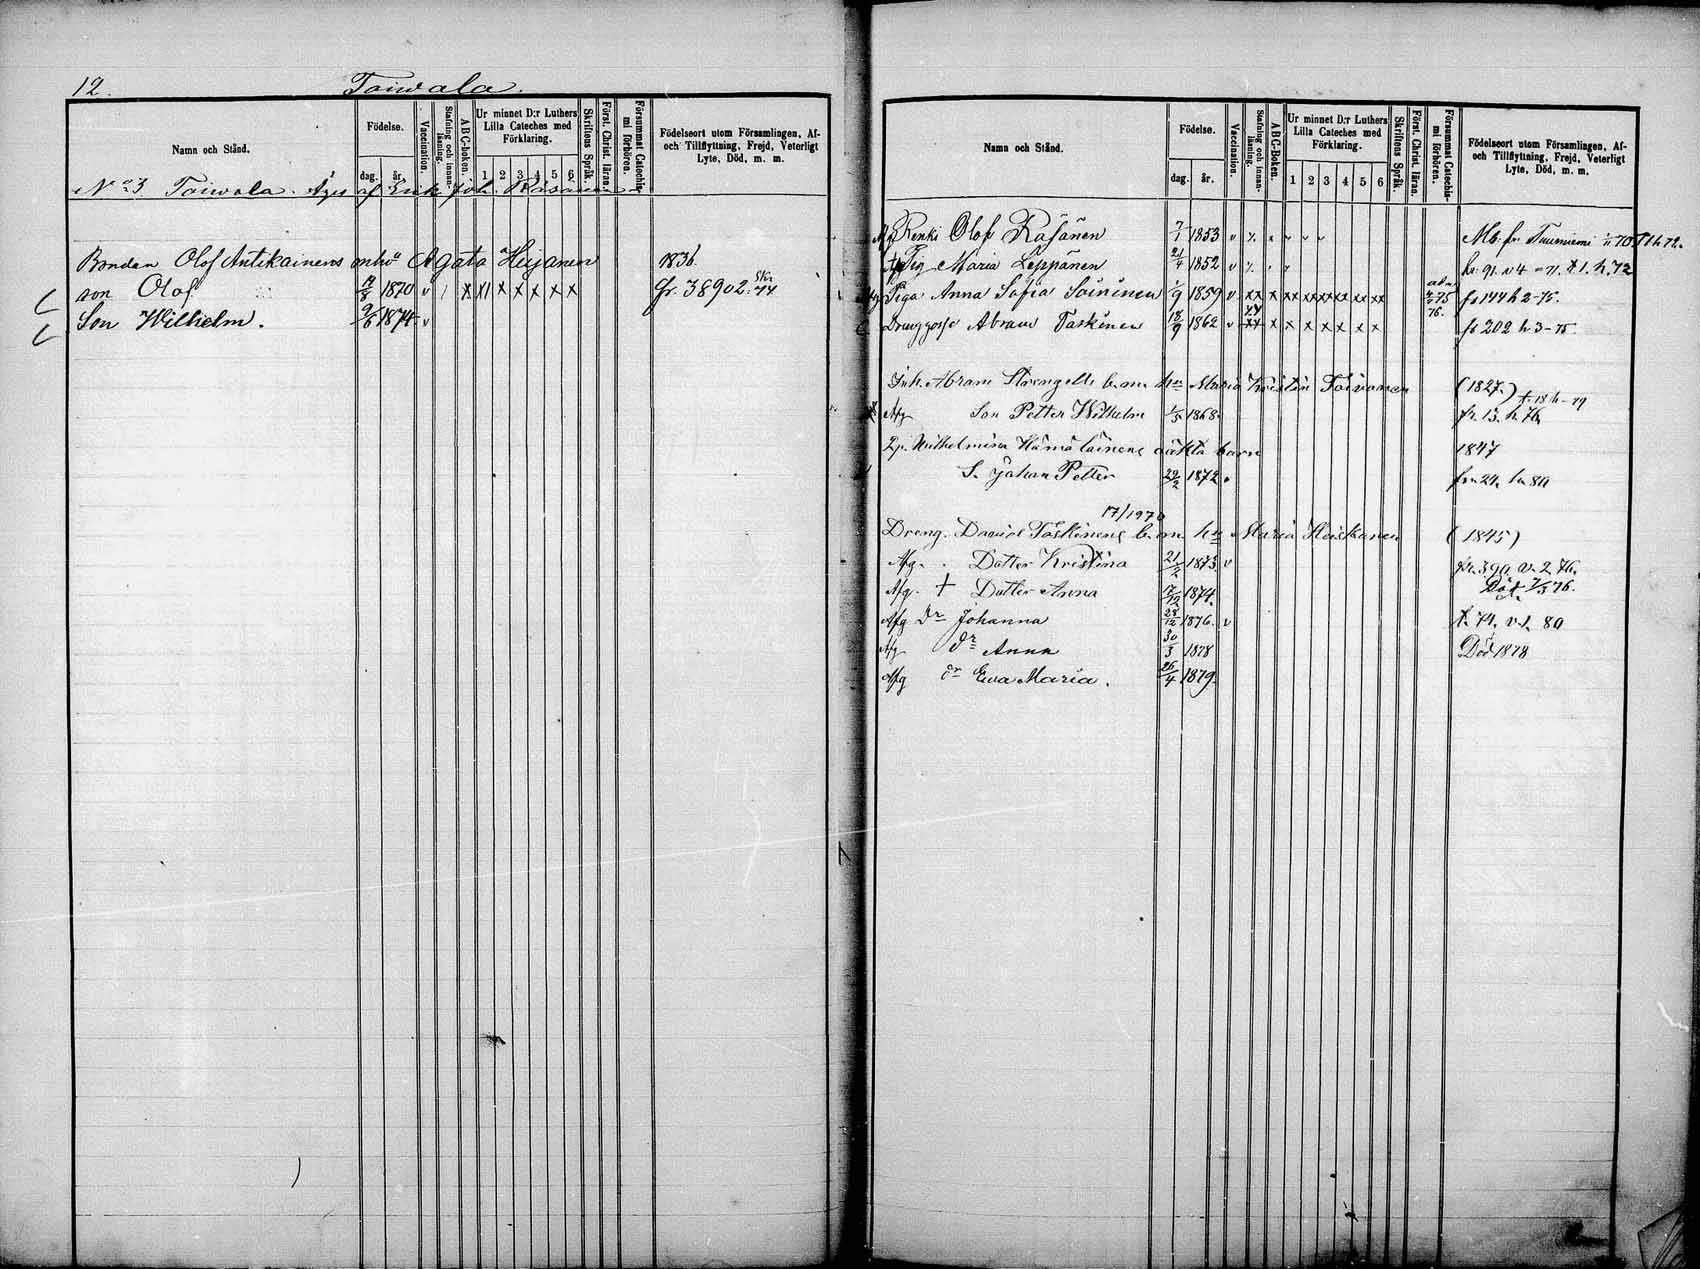 12. Taiwala.
Namn och Stånd.
Födelse.
dag. år.
Vaccination.
Stafning och innan-läsning.
A B C-boken.
Ur minnet D:r Luthers Lilla Cateches med Förklaring.
1 2 3 4 5 6
Skriftens Språk.
Först. Christ. läran.
Försummat Catechis-mi förhören.
Födelseort utom Församlingen, Af- och Tillflyttning, Frejd, Veterligt Lyte, Död, m. m.
No 3 Taiwala. Äges af Erik Joh. Räsänen
Bondan Olof Antikainens enkå Agata Heijanen 1836
son Olof 1870 v x x1 x x x x x fr. 38902.
Son Wilhelm. 2/6 1874 v
Namn och Stånd.
Födelse.
dag. år.
Vaccination.
Stafning och innan-läsning.
A B C-Boken.
Ur minnet D:r Luthers Lilla Cateches med Förklaring.
1 2 3 4 5 6
Skriftens Språk.
Först. Christ. läran.
Försummat Catechis-mi förhören.
Födelseort utom Församlingen, Af- och Tillflyttning, Frejd, Veterligt Lyte, Död, m. m.
Renki Olof Räsänen 7/1 1853 v Mb. fr.
Pig Maria Leppänen 21/4 1852 v
Piga Anna Sofia Soininen 1/9 1859 v xx x xx xx xx xx xx xx fr 144 h 2-75.
Drenggosse Abram Taskinen 18/9 1862 v xx x x x x x x x fr 202 h 3-75.
Inh. Abram Strengells b. m. hu Maria Kristin Toivonen (1827.)
Afg Son Petter Wilhelm 1/5 1868. fr. 13. h 76
Wilhelmina Hämäläinens oäkta barn 1847
S. Johan Petter 29/2 1872 v
17/1970
Dreng. David Taskinens b. m. hu Maria Heiskanen (1845)
Afg. Dotter Kristina 21/2 1873 v
Afg. + Dotter Anna 17/12 1874. Död 7/3 76.
Afg Dr Johanna 28/12 1876. v
Afg dr Anna 30/3 1878 Död 1878
Afg dr Ewa Maria. 26/4 1879